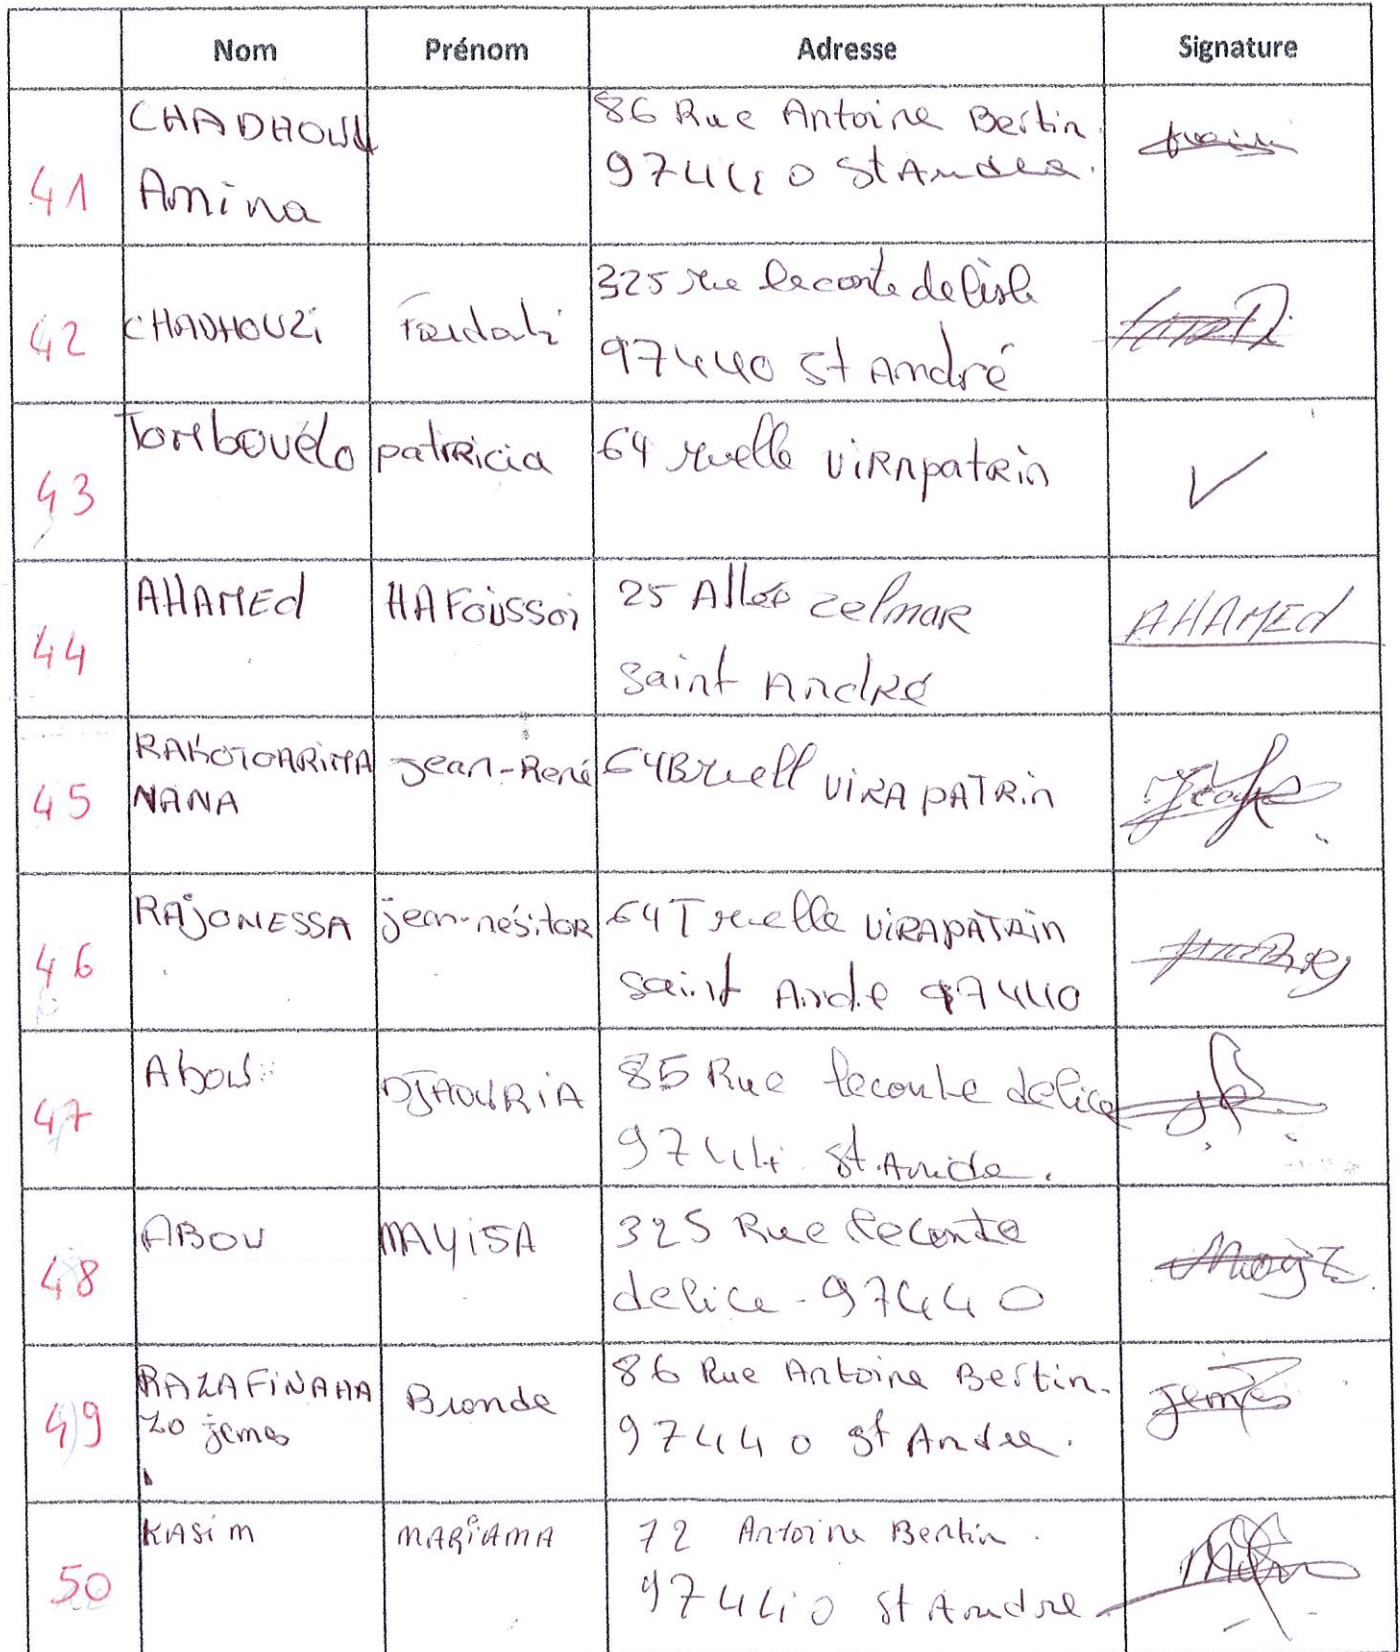 Nom Prénom Adresse Signature
41 CHADHOULI 86 Rue Antoine Bertin.
Amina 97440 St Andea.
42 CHADHOUZi Faidati 325 rue leconte de lisle
97440 St André
43 Tombouélo patRicia 64 ruelle ViRApatRin
44 AHAMEd HAFoussoi 25 Allée zelmaR AHAMEd
Saint AndRé
45 RAKOTOARIMA jean-René 64B ruell ViRA pATRin
NANA
46 RAjONESSA jean-nésitoR 64T ruelle ViRApATRin
saint Andé 97440
47 Abou DJAOURiA 85 Rue leconte delice
9744 St.Ande.
48 ABOU MAYiSA 325 Rue leconte
delice - 97440
49 RAZAFINAHA Bronde 86 Rue Antoine Bertin. jemes
zo jemes 97440 St Andre.
50 KASim MARiAMA 72 Antoine Bertin.
97440 St Andre